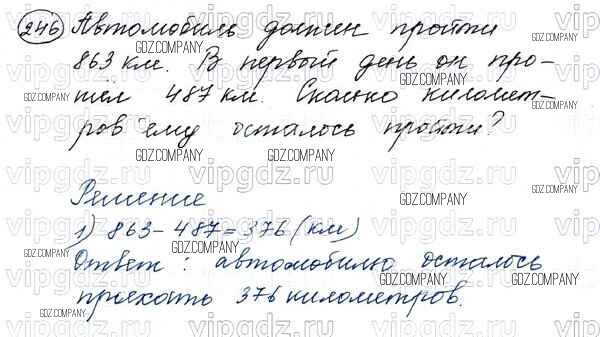 246 Автомобиль должен пройти
863 км. В первый день он про-
шёл 487 км. Сколько километ-
ров ему осталось пройти?
Решение
1) 863 – 487 = 376 (км)
Ответ: автомобилю осталось
проехать 376 километров.
vipgdz.ru
GDZ.COMPANY